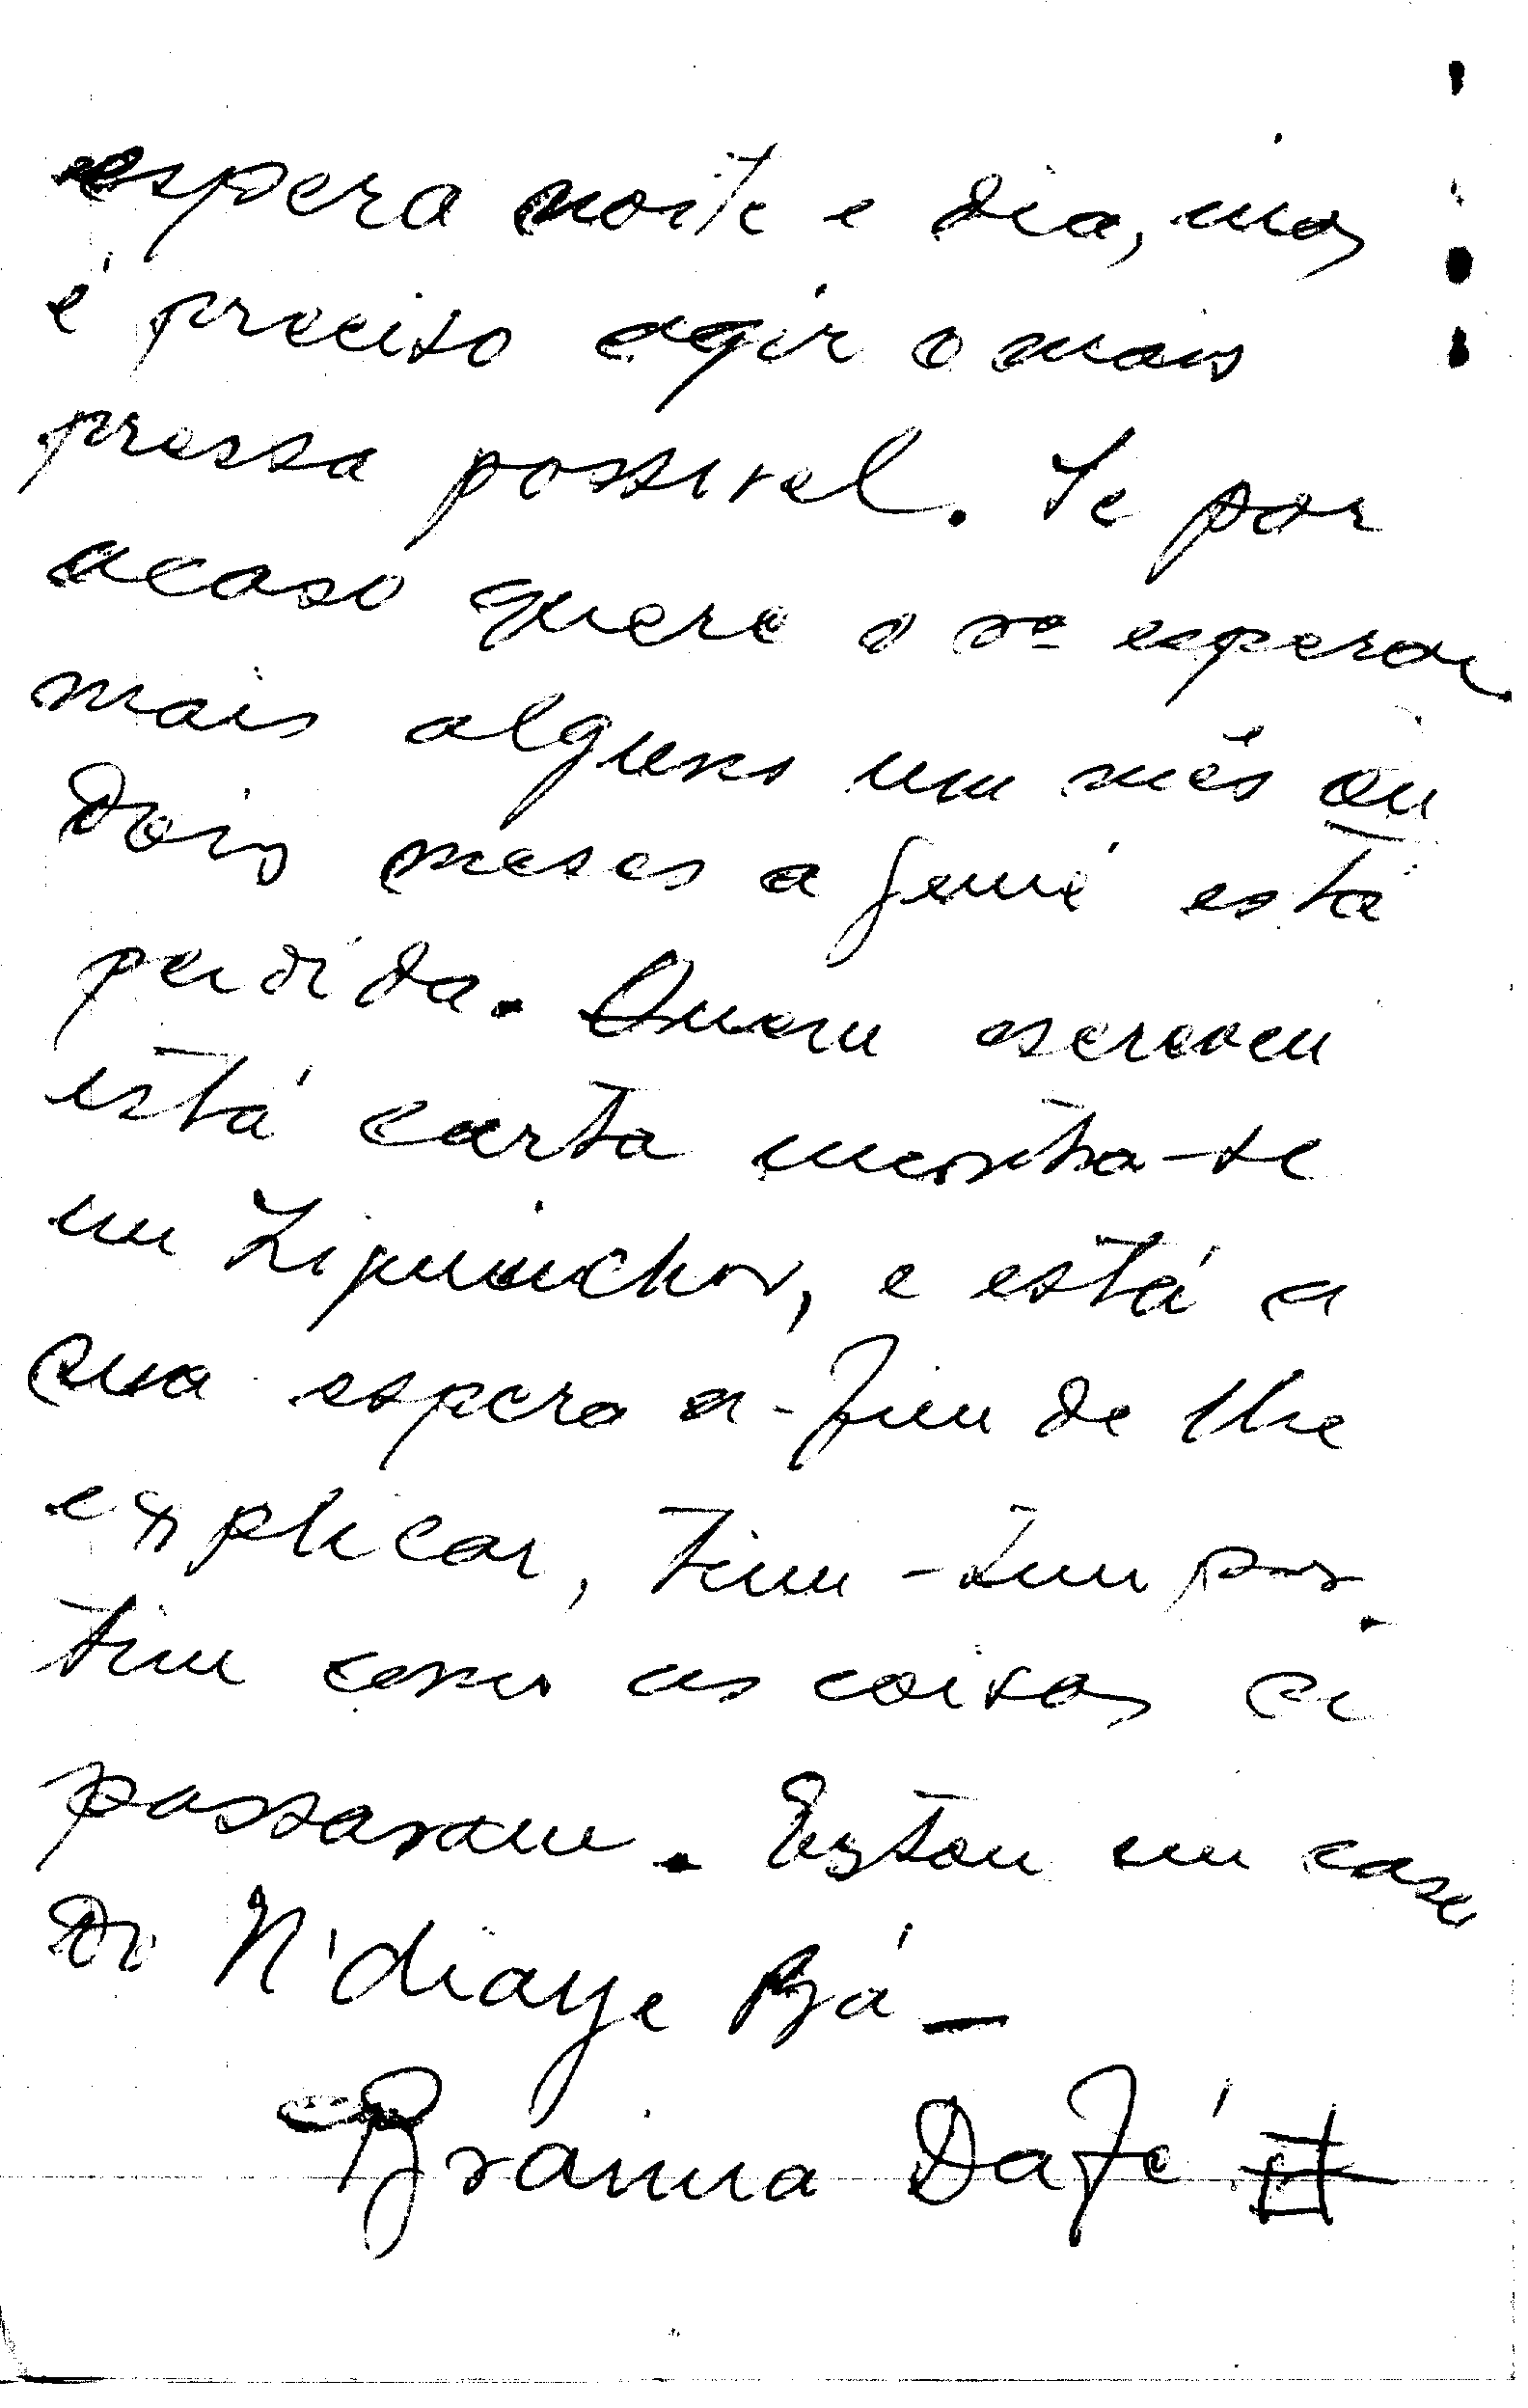 espera noite e dia, mas
é preciso agir o mais
pressa possivel. Se por
acaso quere o sr esperar
mais alguns um mês ou
dois meses a está
perdida. Quem escreveu
está carta mostra-se
em Ziguinchor, e está a
sua espera a-fim de lhe
explicar, tim-tim por
tim como as coisas ai
passaram. Estou em casa
de N'diaye Bá-
Braima Dafé